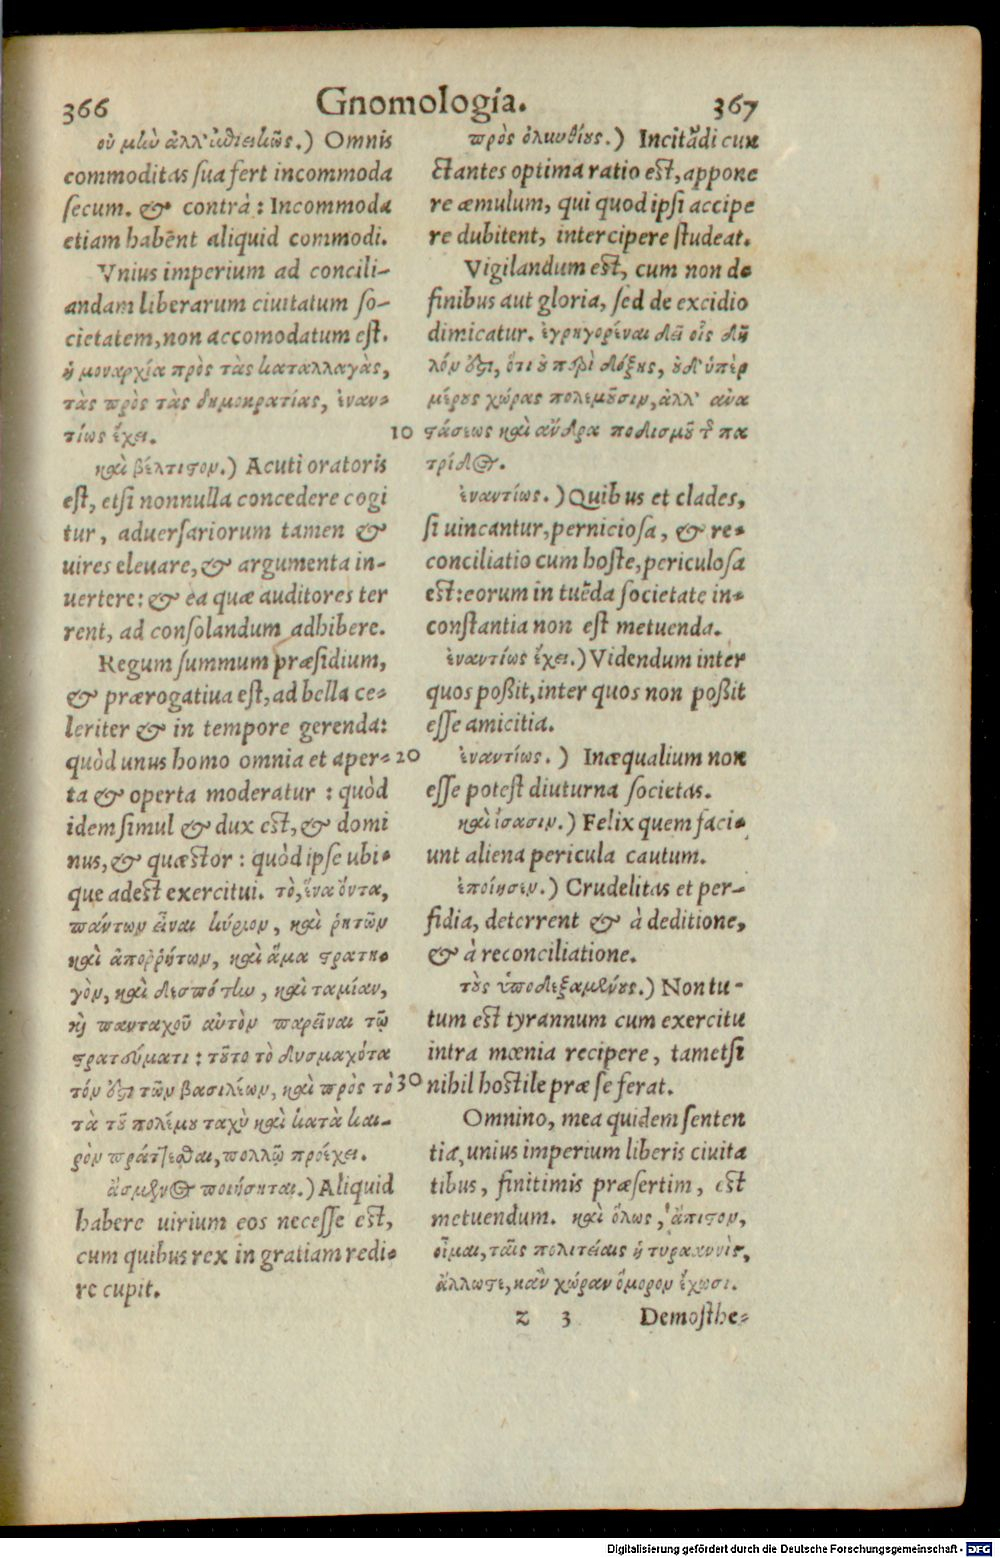 366 Gnomologia. 367
οὐ μὴν ἀλλ' ἐπιεικῶς.) Omnis
commoditas sua fert incommoda
secum. & contrà: Incommoda
etiam habēnt aliquid commodi.
Vnius imperium ad concili-
andam liberarum ciuitatum so-
cietatem, non accomodatum est.
ἡ μοναρχία πρὸς τὰς καταλλαγὰς,
τὰς πρὸς τὰς δημοκρατίας, ἐναν-
τίως ἔχει.
καὶ βέλτιστον.) Acuti oratoris
est, etsi nonnulla concedere cogi
tur, aduersariorum tamen &
uires eleuare, & argumenta in-
uertere: & ea quæ auditores ter
rent, ad consolandum adhibere.
Regum summum præsidium,
& prærogatiua est, ad bella ce-
leriter & in tempore gerenda:
quòd unus homo omnia et aper-
ta & operta moderatur: quòd
idem simul & dux est, & domi
nus, & quæstor: quòd ipse ubi-
que adest exercitui. τὸ, ἕνα ὄντα,
πάντων εἶναι κύριον, καὶ ῥητῶν
καὶ ἀποῤῥήτων, καὶ ἅμα στρατη-
γὸν, καὶ δεσπότην, καὶ ταμίαν,
καὶ πανταχοῦ αὐτὸν παρεῖναι τῷ
στρατεύματι: τοῦτο τὸ δυσμαχότα
τόν ἐστι τῶν βασιλέων, καὶ πρὸς τὸ
τὰ τοῦ πολέμου ταχὺ καὶ κατὰ και-
ρὸν πράττεσθαι, πολλῷ προέχει.
ἀσμένως ποιήσηται.) Aliquid
habere uirium eos necesse est,
cum quibus rex in gratiam redi-
re cupit.
πρὸς ὀλυνθίους.) Incitādi cun
ctantes optima ratio est, appone
re æmulum, qui quod ipsi accipe
re dubitent, intercipere studeat.
Vigilandum est, cum non de
finibus aut gloria, sed de excidio
dimicatur. ἐγρηγορέναι δεῖ οἷς δῆ
λόν ἐστι, ὅτι οὐ περὶ δόξης, οὐδ' ὑπὲρ
μέρους χώρας πολεμοῦσιν, ἀλλ' ἀνα
10 στάσεως καὶ ἀνδρα ποδισμοῦ τῆς πα
τρίδος.
ἐναντίως.) Quibus et clades,
si uincantur, perniciosa, & re-
conciliatio cum hoste, periculosa
est: eorum in tuēda societate in-
constantia non est metuenda.
ἐναντίως ἔχει.) Videndum inter
quos poßit, inter quos non poßit
esse amicitia.
20 ἐναντίως.) Inæqualium non
esse potest diuturna societas.
καὶ ἴσασιν.) Felix quem faci-
unt aliena pericula cautum.
ἐποίησεν.) Crudelitas et per-
fidia, deterrent & à deditione,
& à reconciliatione.
τοὺς ὑποδεξαμένους.) Non tu-
tum est tyrannum cum exercitu
intra mœnia recipere, tametsi
30 nihil hostile præ se ferat.
Omnino, mea quidem senten
tia, unius imperium liberis ciuita
tibus, finitimis præsertim, est
metuendum. καὶ ὅλως, ἄπιστον,
οἶμαι, ταῖς πολιτείαις ἡ τυραννὶς,
ἄλλωστε, κἂν χώραν ὅμορον ἔχωσι.
z 3 Demosthe-
Digitalisierung gefördert durch die Deutsche Forschungsgemeinschaft - DFG